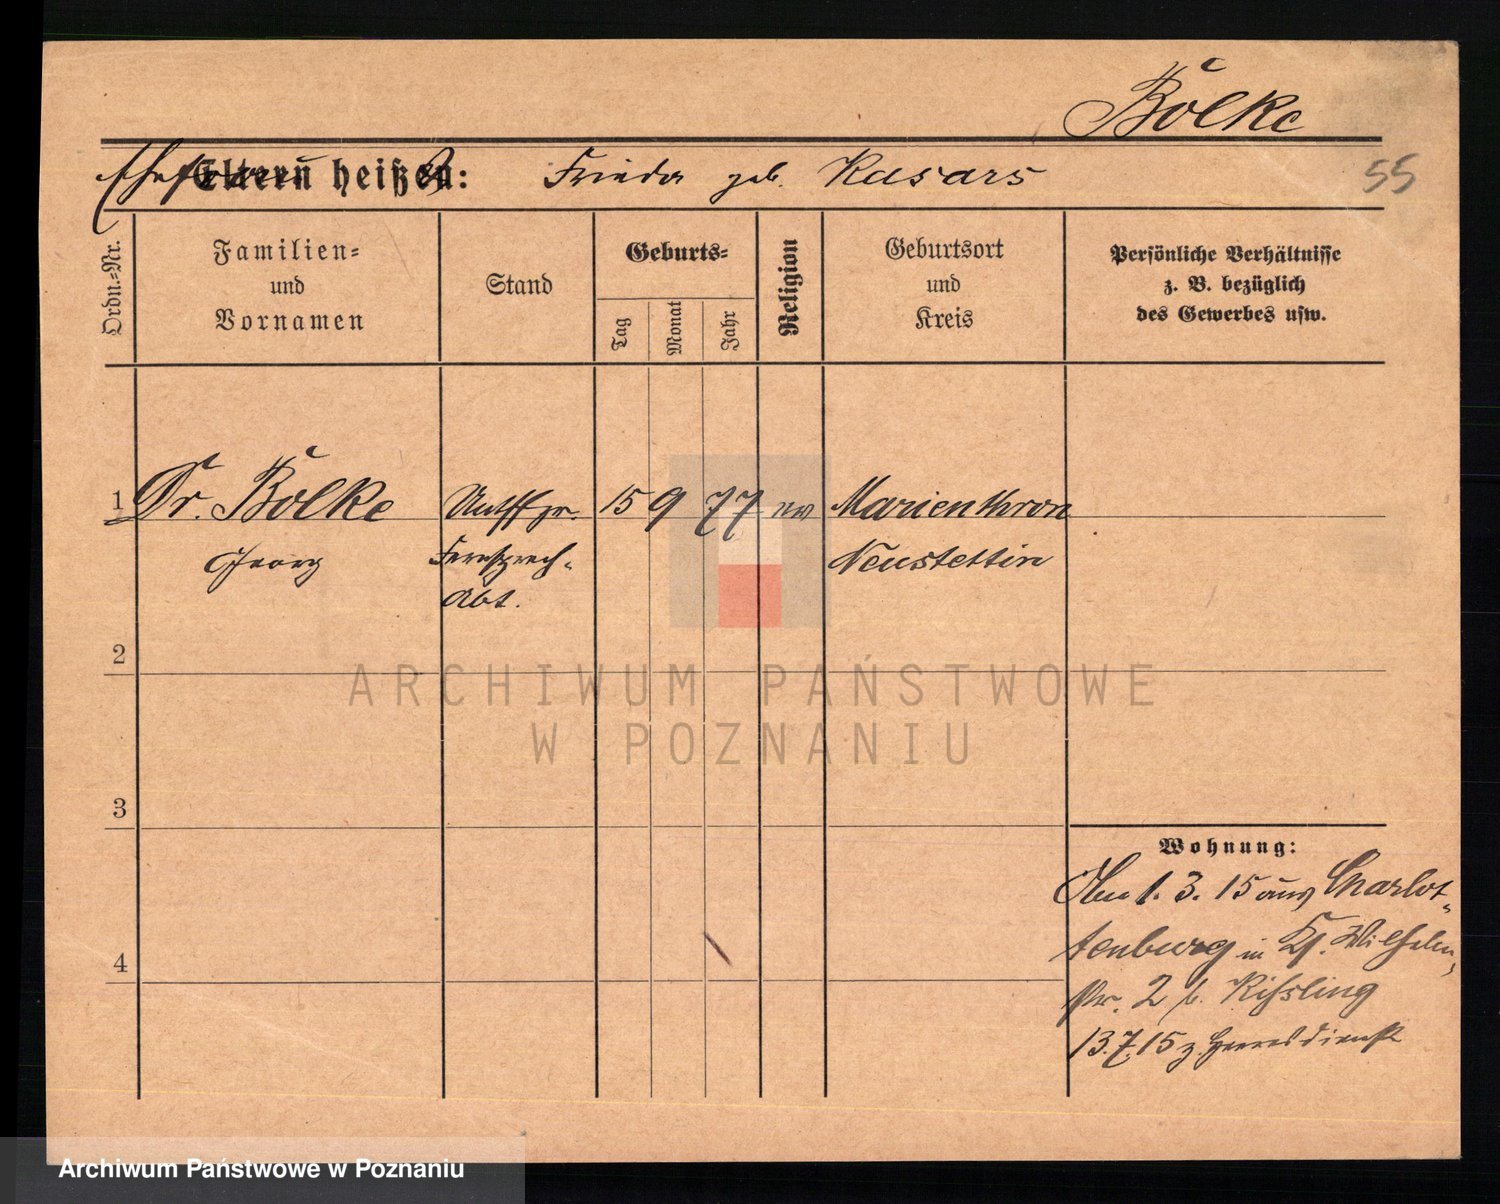 Bölke
Ehefrau
Eltern heißen: Frieda geb. Kasars
55
Ordn.=Nr.
Familien=
und
Vornamen
Stand
Geburts=
Tag
Monat
Jahr
Religion
Geburtsort
und
Kreis
Persönliche Verhältnisse
z. B. bezüglich
des Gewerbes usw.
1 Dr. Bölke 15 9 77 ev Marienthron
Georg Fernsprech- Neustettin
Abt.
2
3
4
Wohnung:
1. 3. 15 aus Charlot-
tenburg in Wilhelm
str. 2 b. Kißling
13.7.15 z. Heeresdienst
ARCHIWUM PAŃSTWOWE
W POZNANIU
Archiwum Państwowe w Poznaniu